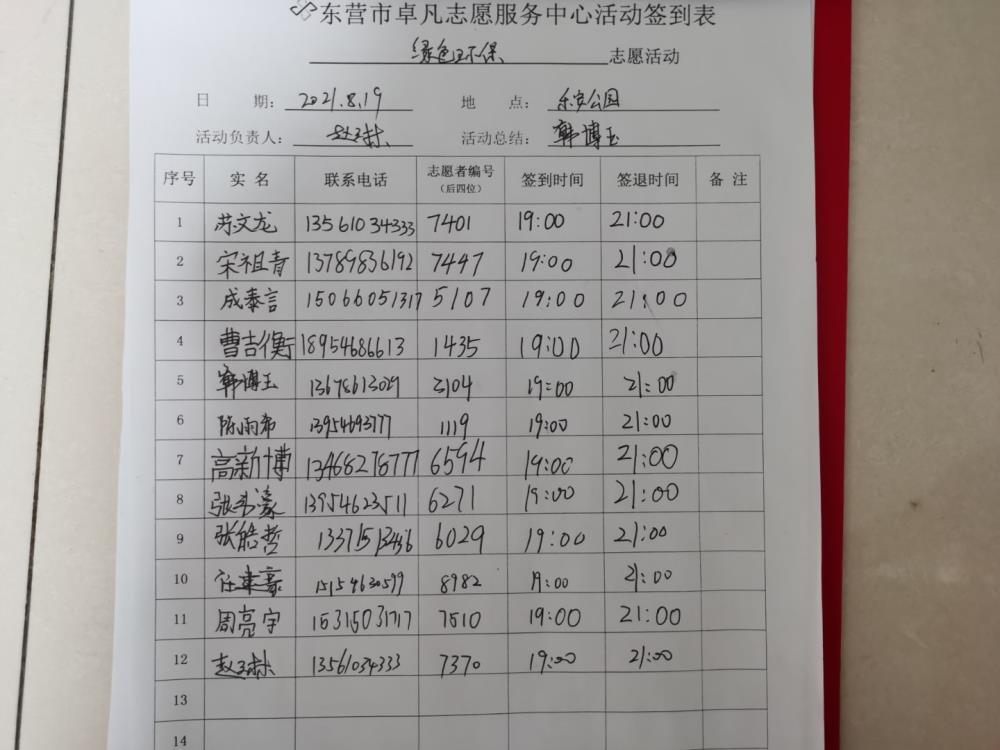 东营市卓凡志愿服务中心活动签到表
绿色环保 志愿活动
日 期: 2021.8.19 地 点: 乐安公园
活动负责人: 活动总结: 韩博玉
序号 实名 联系电话 志愿者编号(后四位) 签到时间 签退时间 备注
1 苏文龙 13561034333 7401 19:00 21:00
2 宋祖青 13789836192 7447 19:00 21:00
3 成泰言 15066051317 5107 19:00 21:00
4 曹吉衡 18954686613 1435 19:00 21:00
5 韩博玉 13678613029 3104 19:00 21:00
6 陈雨希 13954693777 1119 19:00 21:00
7 高新博 13468276777 6594 19:00 21:00
8 13954623511 6271 19:00 21:00
9 张皓哲 6029 19:00 21:00
10 任建豪 15154630599 8982 19:00 21:00
11 周亮宇 15315031717 7510 19:00 21:00
12 13561034333 7370 19:00 21:00
13
14